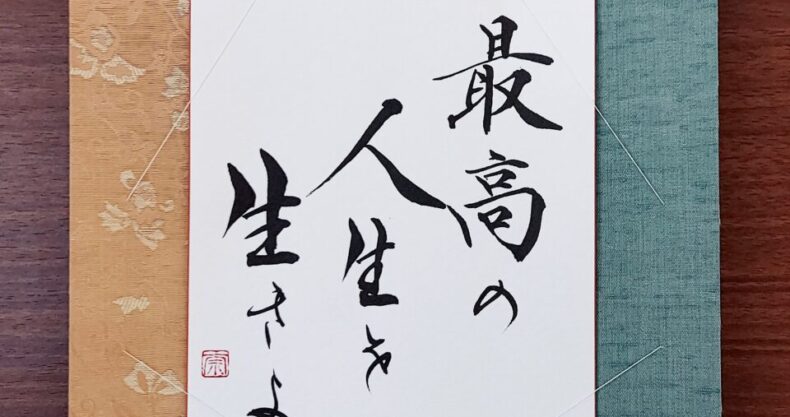 最高の
人生を
生きよ